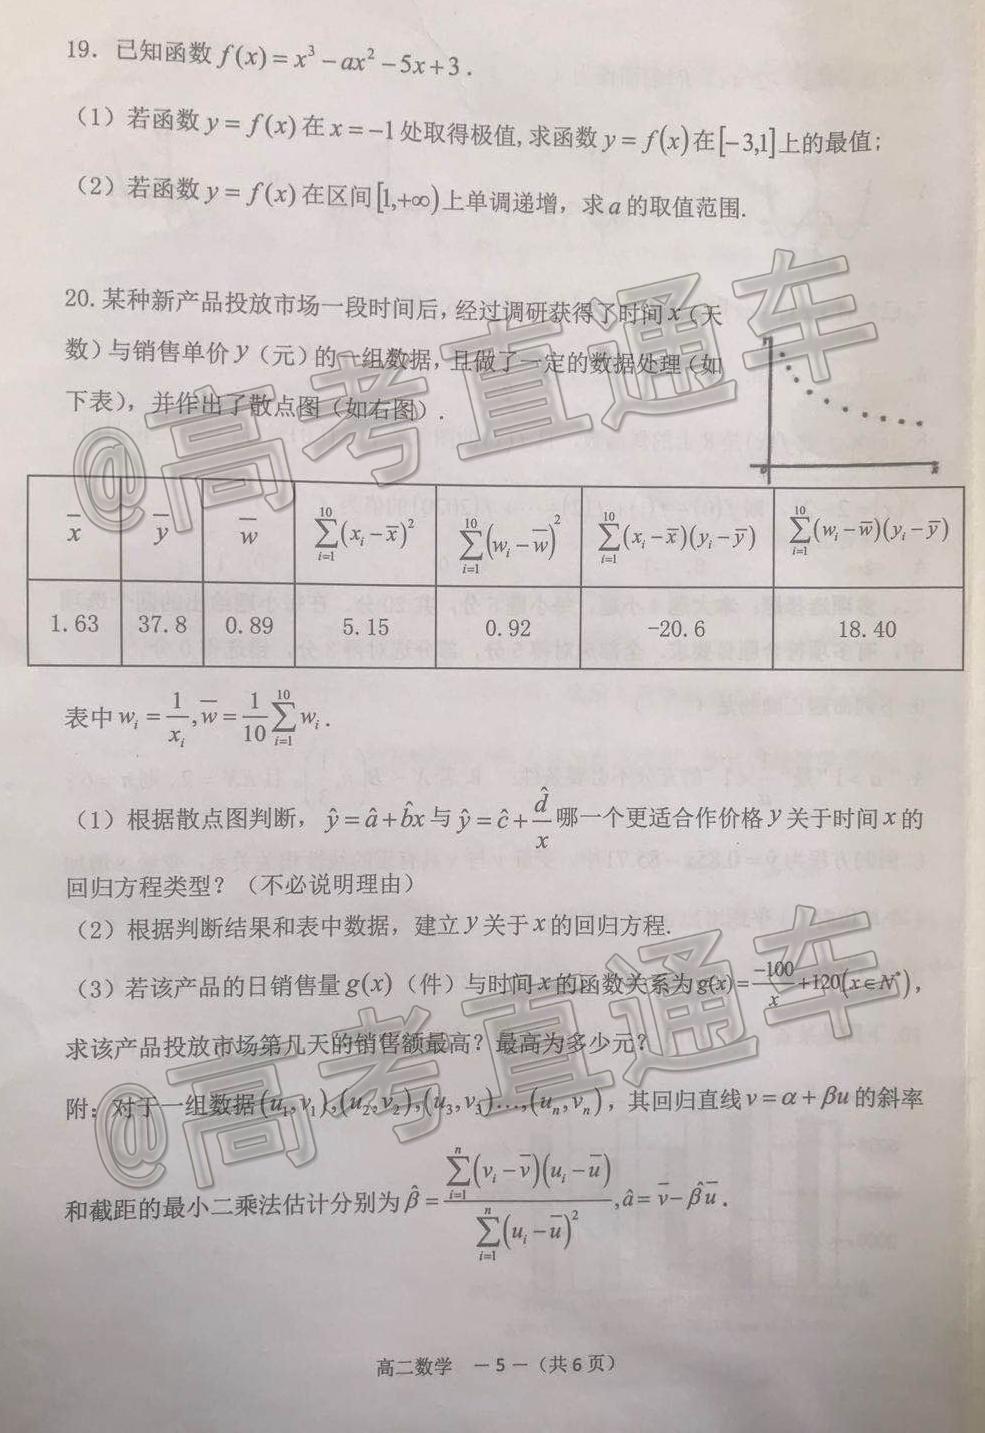 19. 已知函数 f(x)=x³-ax²-5x+3.
(1)若函数 y=f(x) 在 x=-1 处取得极值,求函数 y=f(x) 在 [-3,1] 上的最值;
(2)若函数 y=f(x) 在区间 [1,+∞) 上单调递增,求 a 的取值范围.
20. 某种新产品投放市场一段时间后,经过调研获得了时间 x(天
数)与销售单价 y(元)的一组数据,且做了一定的数据处理(如
下表),并作出了散点图(如右图).
x̄ ȳ w̄ ∑_{i=1}^{10}(x_i-x̄)² ∑_{i=1}^{10}(w_i-w̄)² ∑_{i=1}^{10}(x_i-x̄)(y_i-ȳ) ∑_{i=1}^{10}(w_i-w̄)(y_i-ȳ)
1.63 37.8 0.89 5.15 0.92 -20.6 18.40
表中 w_i=1/x_i, w̄=1/10 ∑_{i=1}^{10} w_i.
(1)根据散点图判断, ŷ=â+b̂x 与 ŷ=ĉ+d̂/x 哪一个更适合作价格 y 关于时间 x 的
回归方程类型?(不必说明理由)
(2)根据判断结果和表中数据,建立 y 关于 x 的回归方程.
(3)若该产品的日销售量 g(x)(件)与时间 x 的函数关系为 g(x)=-100/x+120(x∈N*),
求该产品投放市场第几天的销售额最高?最高为多少元?
附:对于一组数据(u₁,v₁),(u₂,v₂),(u₃,v₃)…,(u_n,v_n),其回归直线 v=α+βu 的斜率
和截距的最小二乘法估计分别为 β̂=∑_{i=1}^{n}(v_i-v̄)(u_i-ū)/∑_{i=1}^{n}(u_i-ū)², â=v̄-β̂ū.
高二数学 —5—(共6页)
@高考直通车
@高考直通车